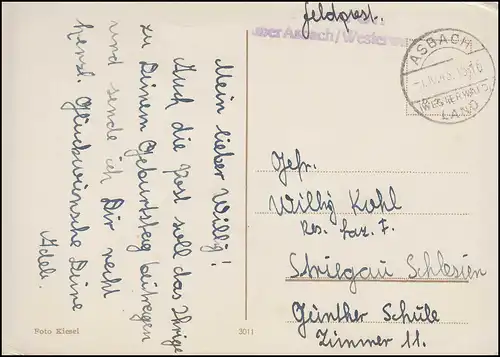 Feldpost.
über Asbach/Westerwald
ASBACH
(WESTERWALD)
LAND
Mein lieber Willy!
Auch die Post soll das Ihrige
zu Deinem Geburtstag beitragen
und sende ich Dir recht
herzl. Glückwünsche Deine
Adele.
Gefr.
Willy Kohl
Res. Laz. I.
Striegau Schlesien
Günther Schule
Zimmer 11.
Foto Kiesel
3011